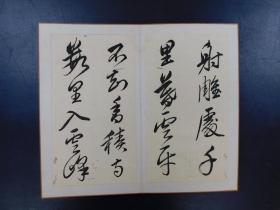 射雕處千
里暮雲平
不知香積寺
數里入雲峰